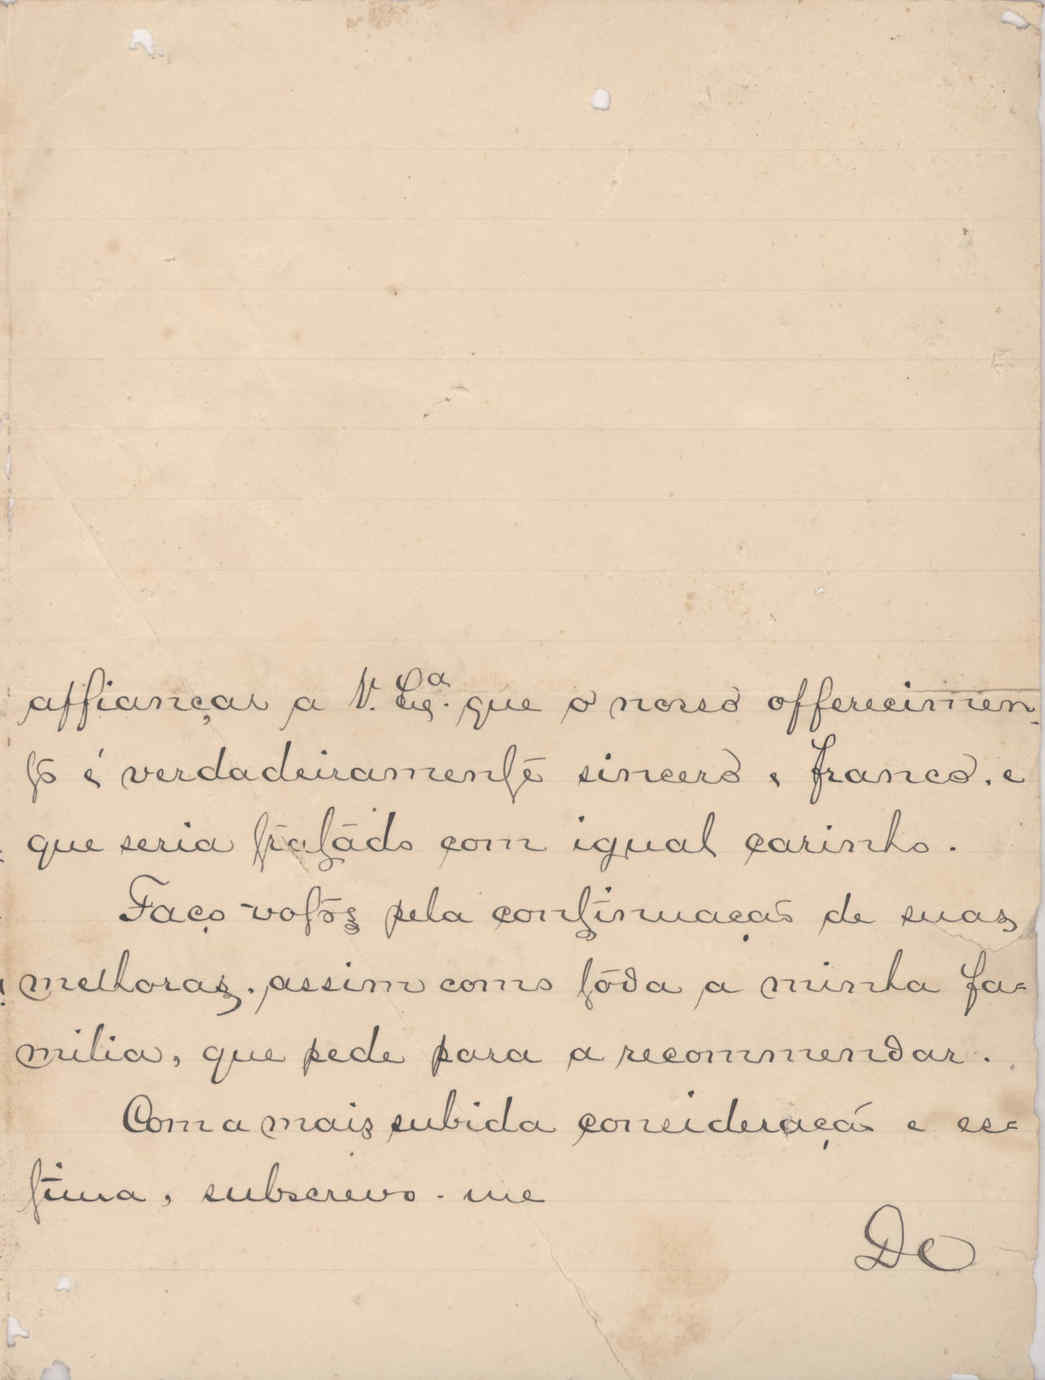 affiançar a V. Exª. que o nosso offerecimen-
to é verdadeiramente sincero e franco, e
que seria tratado com igual carinho.
Faço votos pela continuação de suas
melhoras, assim como tôda a minha fa=
milia, que pede para a recommendar.
Com a mais subida consideração e es=
tima, subscrevo-me
De